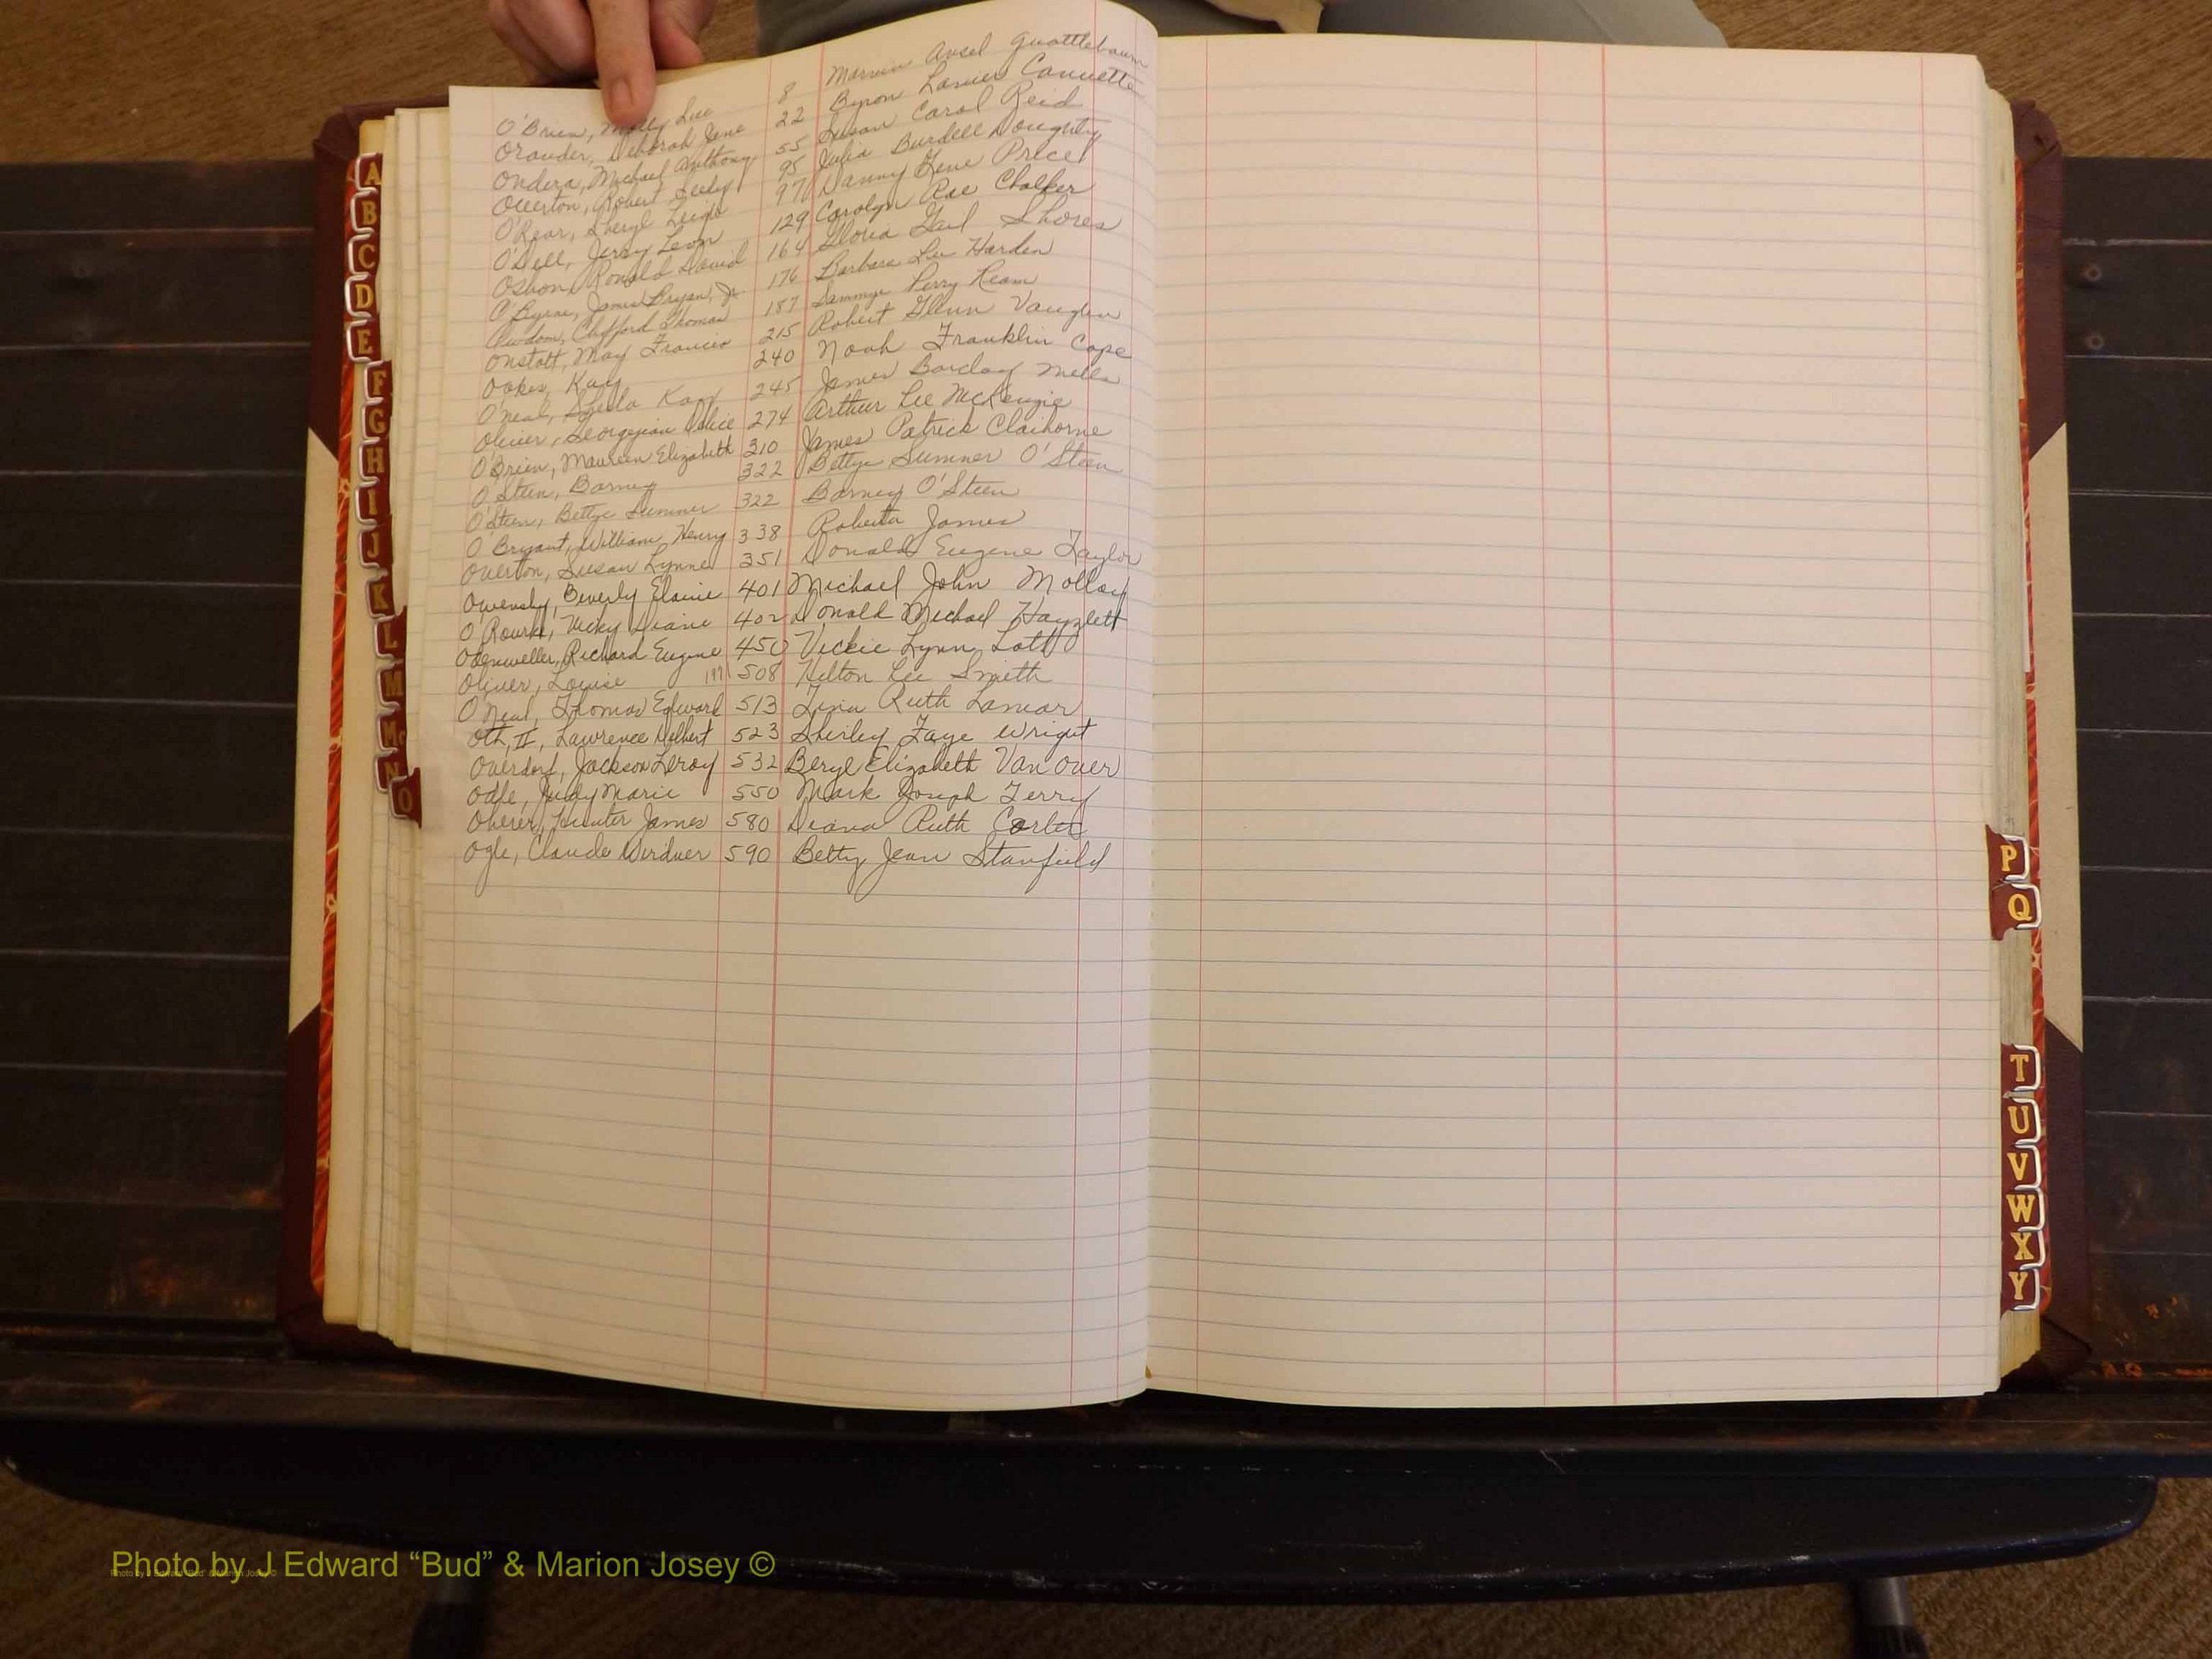 O'Brien, Molly Lee 8 Marvin Ansel Quattlebaum
Orander, Deborah Jene 22 Byron Lanier Cannette
Ondera, Michael Anthony 55 Susan Carol Reid
Overton, Robert Seely 95 Julia Burdell Doughty
O'Rear, Sheryl Leigh 97 Danny Gene Price
O'Dell, Jerry Leon 129 Carolyn Rae Chalker
Osbon, Ronald David 164 Gloria Gail Shores
O'Byrne, James Bryan, Jr. 176 Barbara Lee Harden
Clifford Thomas 187 Sammye Perry Ream
Onstott, May Frances 215 Robert Glenn Vaughn
Oakes, Kay 240 Noah Franklin Cope
O'Neal, Sheila Kay 245 James Barclay Mells
Oliver, Georgean Alice 274 Arthur Lee McKenzie
O'Brien, Maureen Elizabeth 310 James Patrick Claiborne
O'Steen, Barney 322 Bettye Sumner O'Steen
O'Steen, Bettye Sumner 322 Barney O'Steen
O'Bryant, William Henry 338 Roberta James
Overton, Susan Lynne 351 Donald Eugene Taylor
Owensby, Beverly Elaine 401 Michael John Molloy
O'Rourke, Vicky Diane 402 Donald Michael Hayzlett
Odenweller, Richard Eugene 450 Vickie Lynn Lott
Oliver, Louise M 508 Hilton Lee Smith
O'Neal, Thomas Edward 513 Ruth Lamar
Oth, II, Lawrence Delbert 523 Shirley Faye Wright
Overdorf, Jackson Leroy 532 Beryl Elizabeth Van Over
Odle, Judy Marie 550 Mark Joseph Terry
Oberer, Hunter James 580 Diana Ruth Carter
Ogle, Claude 590 Betty Jean Stanfield
A
B
C
D
E
F
G
H
I
J
K
L
M
Mc
N
O
P
Q
T
U
V
W
X
Y
Photo by J Edward “Bud” & Marion Josey ©
Photo by J Edward “Bud” & Marion Josey ©